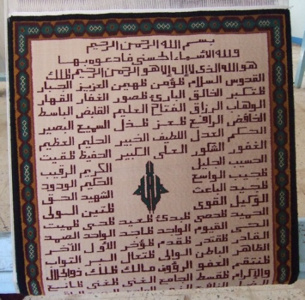 بسم الله الرحمن الرحيم
ولله الأسماء الحسنى فادعوه بها
هو الله الذي لا إله إلا هو الرحمن الرحيم الملك
القدوس السلام المؤمن المهيمن العزيز الجبار
المتكبر الخالق البارئ المصور الغفار القهار
الوهاب الرزاق الفتاح العليم القابض الباسط
الخافض الرافع المعز المذل السميع البصير
الحكم العدل اللطيف الخبير الحليم العظيم
الغفور الشكور العلي الكبير الحفيظ المقيت
الحسيب الجليل الكريم الرقيب
المجيب الواسع الحكيم الودود
المجيد الباعث الشهيد الحق
الوكيل القوي المتين الولي
الحميد المحصي المبدئ المعيد المحيي المميت
الحي القيوم الواجد الماجد الواحد الصمد
القادر المقتدر المقدم المؤخر الأول الآخر
الظاهر الباطن الوالي المتعال البر التواب
المنتقم العفو الرؤوف مالك الملك ذو الجلال
والإكرام المقسط الجامع الغني المغني المانع